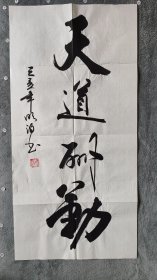 天道酬勤
己亥年
书